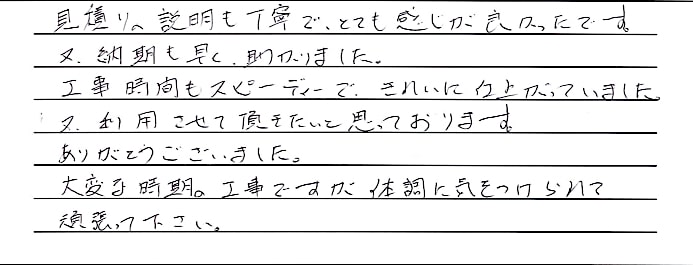 見積りの説明も丁寧で、とても感じが良かったです。
又、納期も早く、助かりました。
工事時間もスピーディーで、きれいに仕上がっていました。
又、利用させて頂きたいと思っております。
ありがとうございました。
大変な時期の工事ですが体調に気をつけられて
頑張って下さい。